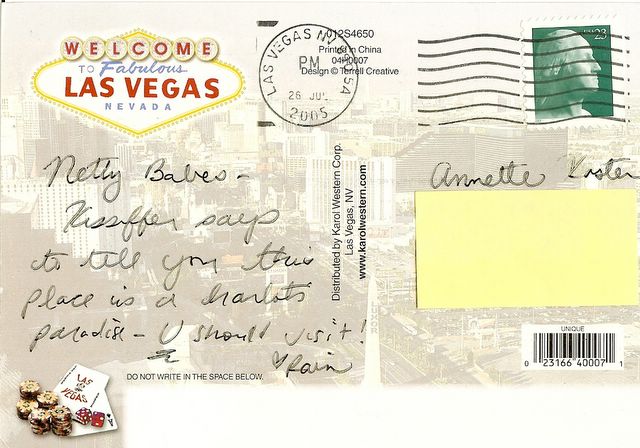 WELCOME
TO Fabulous
LAS VEGAS
NEVADA
012S4650
Printed in China
Design © Terrell Creative
LAS VEGAS NV
PM
26 JUL
2005
USA 23
Netty Babes -
says
to tell you this
place is a harlots
paradise - U should visit!
Rain
Annette Koster
Distributed by Karol Western Corp.
Las Vegas, NV
www.karolwestern.com
UNIQUE
0 23166 40007 1
DO NOT WRITE IN THE SPACE BELOW.
LAS
VEGAS